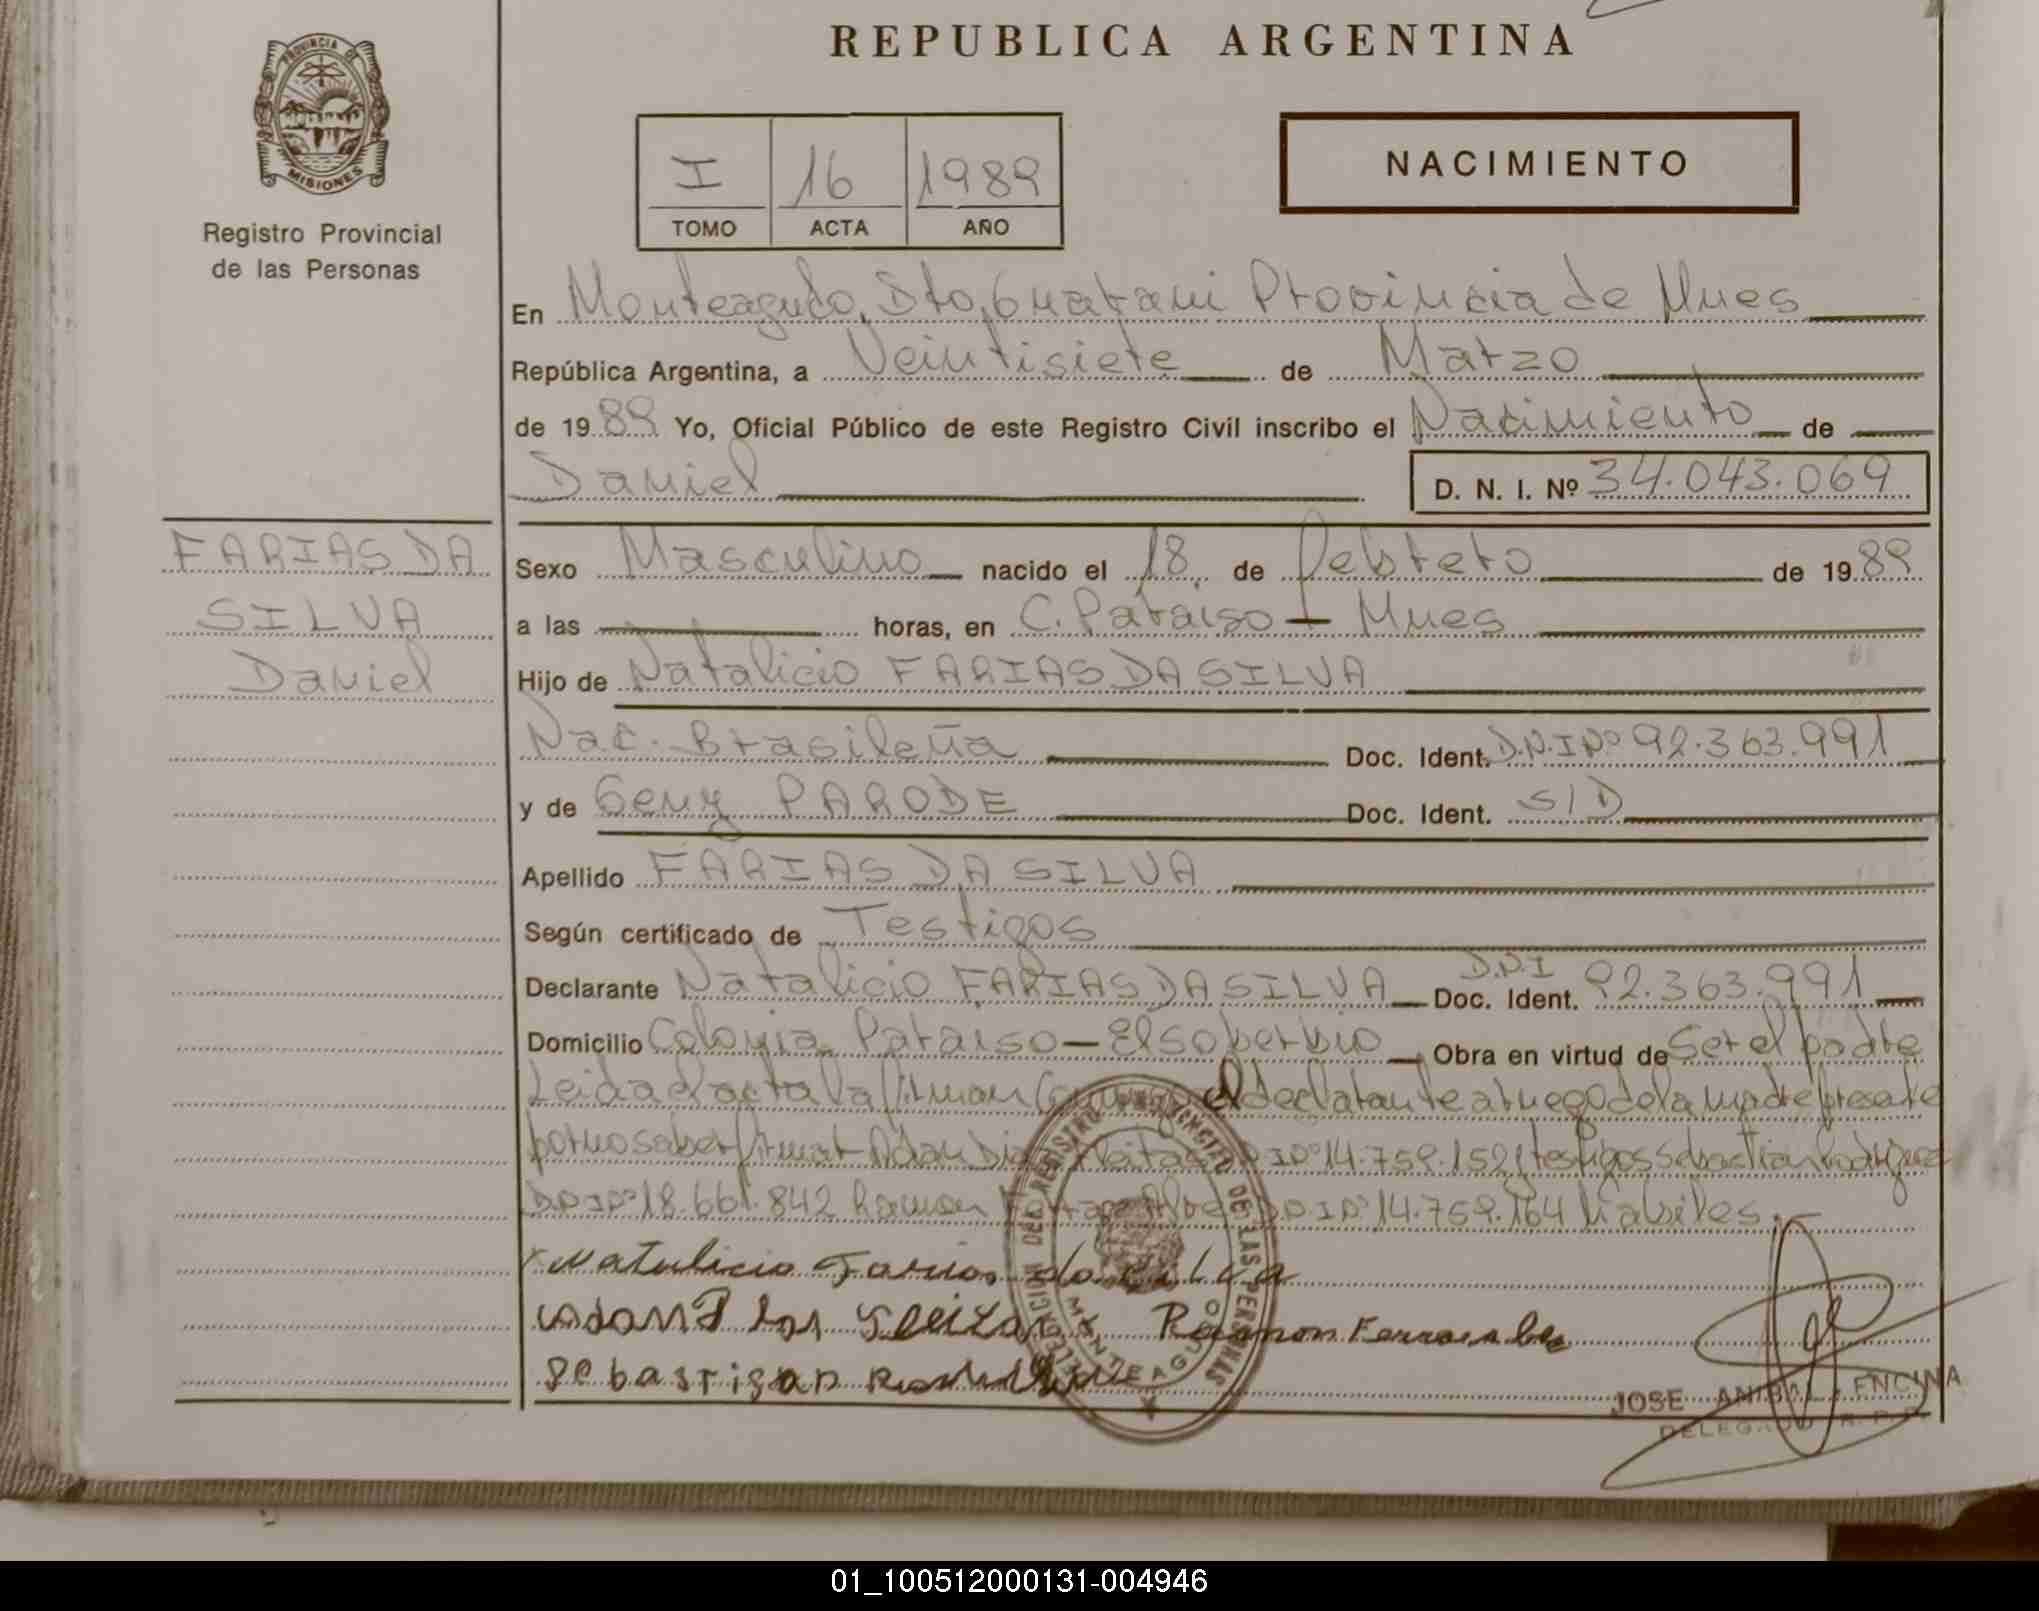 REPUBLICA ARGENTINA
PROVINCIA DE
MISIONES
Registro Provincial
de las Personas
I 16 1989
TOMO ACTA AÑO
NACIMIENTO
En Monteagudo, Dto, Guarani Provincia de Mnes
República Argentina, a Veintisiete de Marzo
de 1989 Yo, Oficial Público de este Registro Civil inscribo el Nacimiento de
Daniel D. N. I. Nº 34.043.069
FARIAS DA
SILVA
Daniel
Sexo Masculino nacido el 18 de febrero de 1989
a las horas, en C. Paraiso - Mnes
Hijo de Natalicio FARIAS DA SILVA
Nac. Brasileña Doc. Ident. D.N.I Nº 92.363.991
y de Geny PARODE Doc. Ident. S/D
Apellido FARIAS DA SILVA
Según certificado de Testigos
Declarante Natalicio FARIAS DA SILVA Doc. Ident. D.N.I 92.363.991
Domicilio Colonia Paraiso - El soberbio Obra en virtud de Ser el padre
Leida el acta la firman el declarante a ruego de la madre presente
por no saber firmar Adan D.N.I Nº 14.759.152 testigos Sebastian Rodriguez
D.N.I Nº 18.661.842 Ramon D.N.I Nº 14.759.164 habiles.
Natalicio Farias da Silva
Ramon
Sebastian
REGISTRO PROVINCIAL DE LAS PERSONAS
MONTEAGUDO
JOSE ANIBAL ENCINA
DELEGADO R. P. P.
01_100512000131-004946